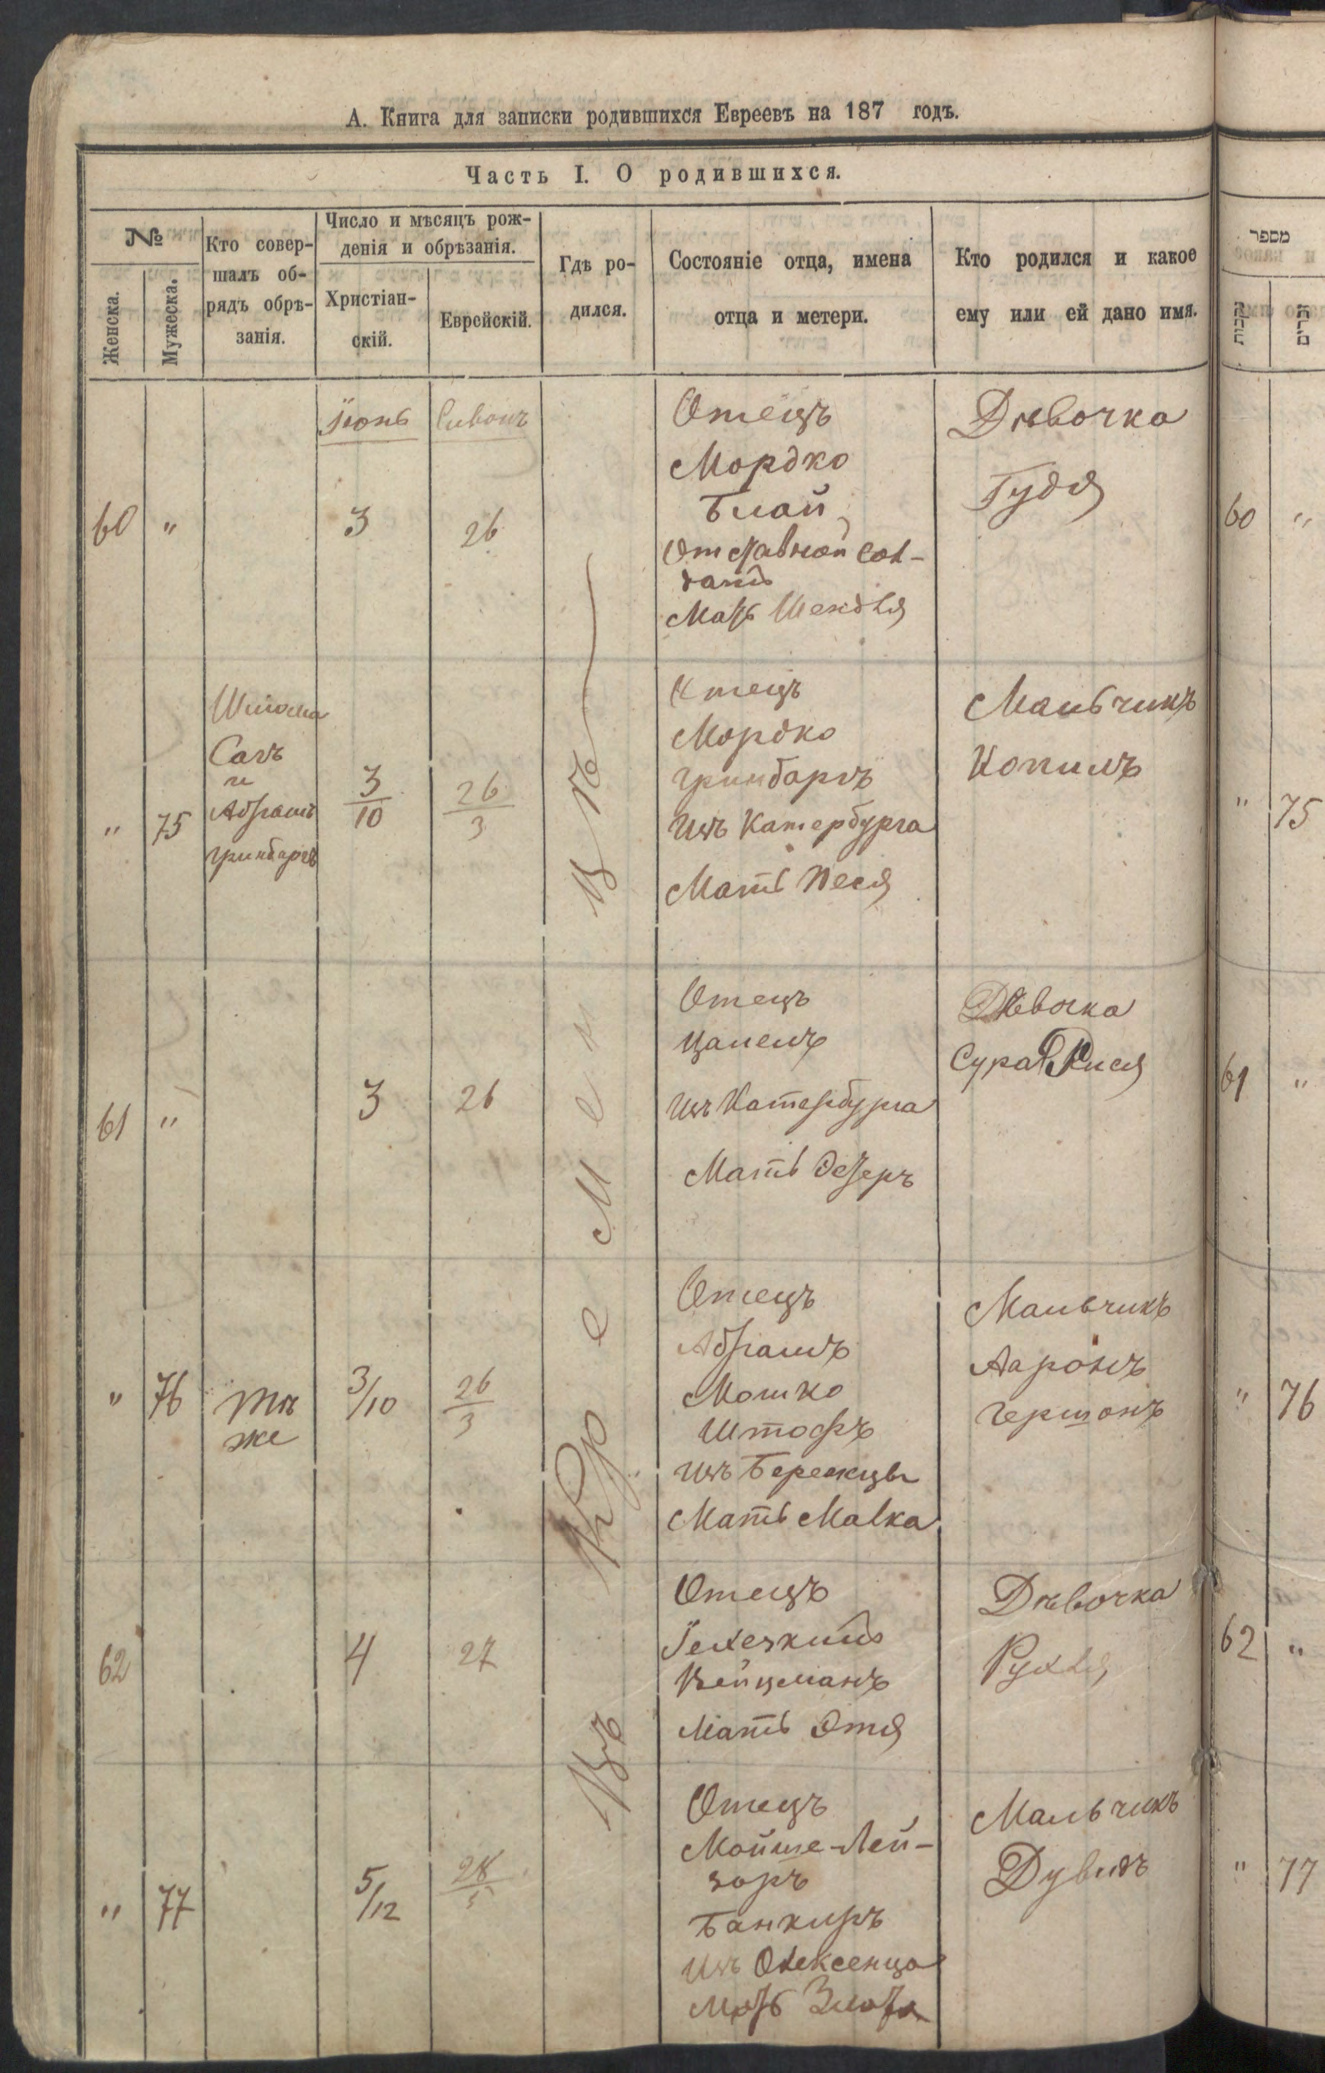 А. Книга для записки родившихся Евреевъ на 187 годъ.
Часть I. О родившихся.
№
Женска.
Мужеска.
Кто совер-
шалъ об-
рядъ обрѣ-
занія.
Число и мѣсяцъ рож-
денія и обрѣзанія.
Христіан-
скій.
Еврейскій.
Гдѣ ро-
дился.
Состояніе отца, имена
отца и метери.
Кто родился и какое
ему или ей дано имя.
מספר
נקבות
זכרים
Въ Кременцѣ
60 "
Іюнь
3
Сивонъ
26
Отецъ
Мордко
Блай
Отставной сол-
датъ
Мать Шендля
Дѣвочка
Гудя
60 "
" 75
Шлома
Сачъ
и
Абрамъ
Гринбаргъ
3/10
26/3
Отецъ
Мордко
Гринбаргъ
Изъ Катербурга
Мать Песя
Мальчикъ
Копилъ
" 75
61 "
3
26
Отецъ
Цалелъ
Изъ Катербурга
Мать Эстеръ
Дѣвочка
Сура Рися
61 "
" 76
Тѣ
же
3/10
26/3
Отецъ
Абрамъ
Мошко
Штофъ
Изъ Бережцы
Мать Малка
Мальчикъ
Ааронъ
Гершонъ
" 76
62
4
27
Отецъ
Вейцманъ
Мать Этя
Дѣвочка
Рухля
62 "
" 77
5/12
28/5
Отецъ
Мойше-Лей-
зоръ
Банкиръ
Изъ Олексенца
Мать Злота
Мальчикъ
Дувидъ
" 77